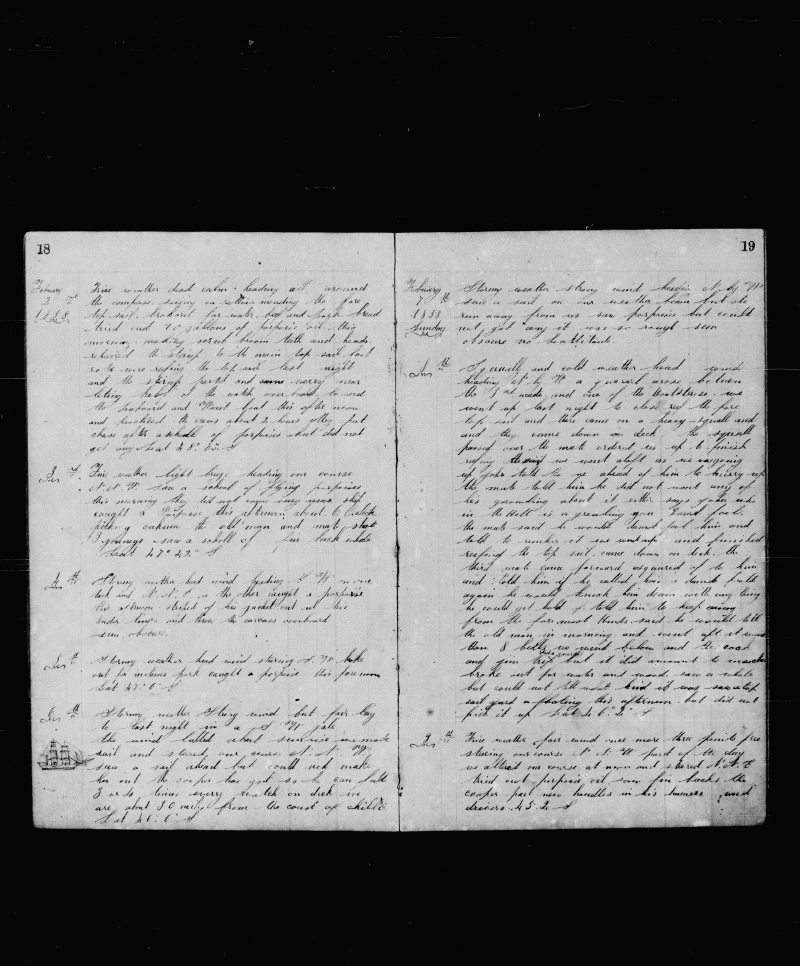 18
February
2nd
1888
Fine weather dead calm heading all around
the compass. mending the fore
top sail. broke out for water. and pork bread
tried out 70 gallons of porpoise oil this
morning. making broom teeth and heads
repaired the stirup to the main top sail foot
so we were reefing the top sail last night
and the stirup parted and came very near
leting two of the watch over board. lowered
the starboard and Waist boat this after noon
and practised the crews about 2 hours after put
chase after a school of porpoises but did not
get any Lat 48° S
3rd
Fine wather light braze heading our course
N. N. W. saw a school of flying porpoises
this morning they did not come very near ship
caught a Porpoise this afternoon about 6 O clock
picking oakum the old man and mate shot
3 gonneys. saw a scholl of fin back whale
Lat 47° 42" S
4th
Stormy weather head wind heading S W on one
tack and N. N. E. on the other caught a porpoise
this afternoon striped of his jacket cut out his
tender lines and threw the carcass overboard
sun obscure.
5th
Stormy weather head wind staring broke
out for molasses pork caught a porpoise this forenoon
Lat 47° 0" S
6th
Stormy weather Strong wind but fair lay
to last night in a S W gale.
the wind lulled about sunrise we made
sail and steard our course N. N. W.
saw a sail ahead but could not make
her out the cooper has got so he can
3 or 4 times every watch on deck we
are about 30 miles from the coast of Chille
Lat 46° 0" S
19
February
7th
1888
Sunday
Stormy weather strong wind heading N. by W
saw a sail on our weather beam but she
run away from us saw porpoises but could
not get any it was so rough sun
obscure no lattitude.
8th
Squally and cold weather head wind
heading N. by W a quarrel arose between
the 3rd mate and one of the Boatstears. we
went up last night to close reef the fore
top sail and there came on a heavy squall and
and they came down on deck. the squall
passed over the mate ordered us up to finish
refing we went aloft as we were going
up John told the ahead of him to hurry up
the mate told him he did not want any of
his grumbling about it either says John who
in the Hell is a grumbling you Damd fool.
the mate said he would damd fool him and
told to rember it we went up and finished
reefing the top sail. came down on deck. the
third mate came forward squared of to him
and told him if he called him a damd fool
again he would knock him down with any thing
he could get hold of told him to keep away
from the foremast Hands said he would tell
the old man in morning and went aft it was
then 8 bells we went below and the cook
and Jim but it did amount to much
broke out for water and wood. saw a whale
but could not tell what kind it was saw a top
sail yard a floating this afternoon. but did not
pick it up Lat 46° 2" S
9th
Fine weather fair wind once more three points free
stearing our course N. N. W part of the day
we altered our course at noon and stered N. N. E
tried out porpoise oil saw fin backs the
cooper put new handles in his hamers and
drivers. 45. 2. S